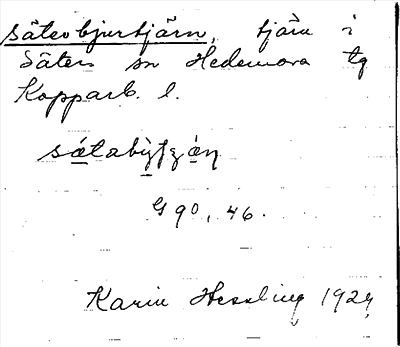 Säterbjurtjärn, tjärn i
Säters sn Hedemora tg
Kopparb. l.
G 90, 46.
Karin Hessling 1929